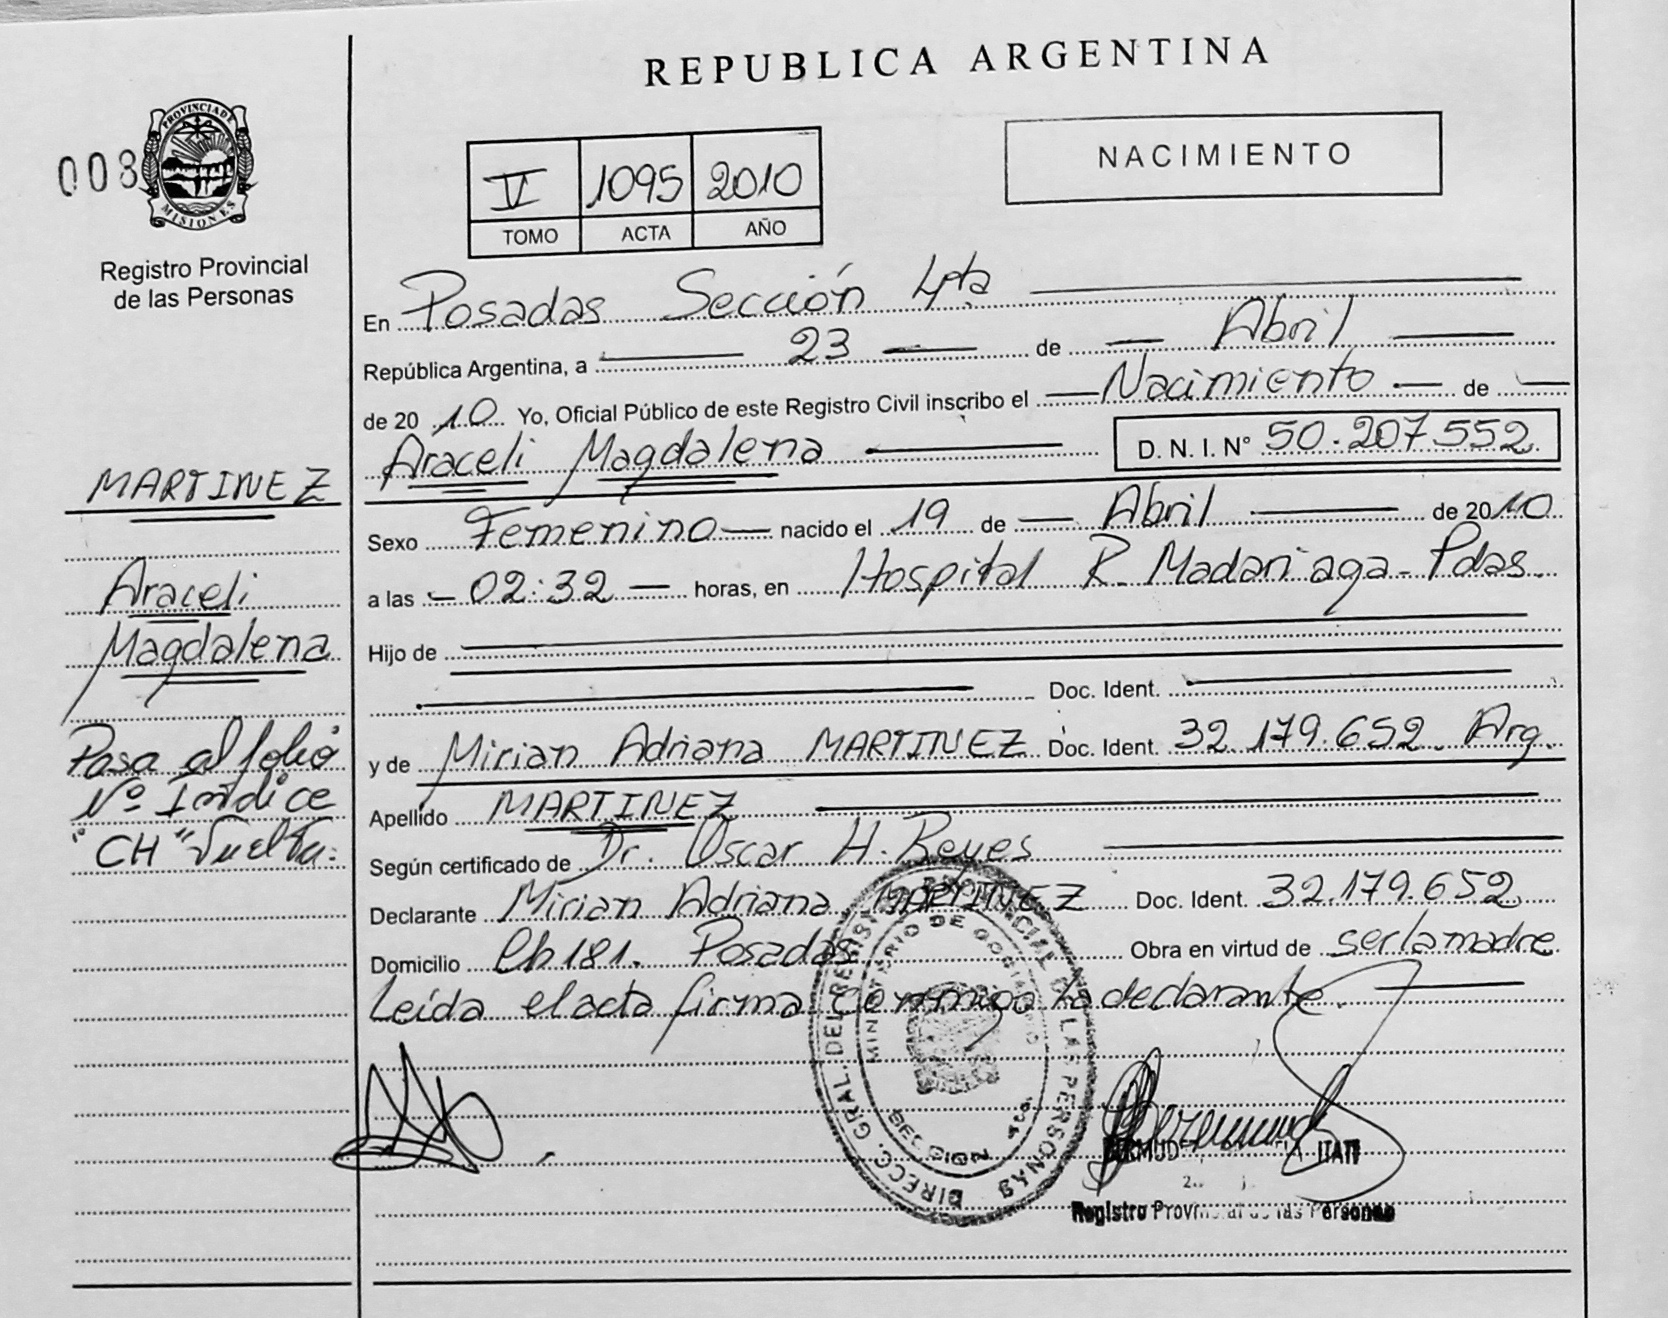 REPUBLICA ARGENTINA
NACIMIENTO
008
PROVINCIA DE MISIONES
Registro Provincial
de las Personas
V 1095 2010
TOMO ACTA AÑO
En Posadas Sección 4ta
República Argentina, a 23 de Abril
de 2010 Yo, Oficial Público de este Registro Civil inscribo el Nacimiento de
Araceli Magdalena D.N.I. N° 50.207.552
Sexo Femenino nacido el 19 de Abril de 2010
a las 02:32 horas, en Hospital R. Madariaga - Pdas.
Hijo de
Doc. Ident.
y de Mirian Adriana MARTINEZ Doc. Ident. 32.179.652. Arg.
Apellido MARTINEZ
Según certificado de Dr. Oscar H. Reyes
Declarante Mirian Adriana MARTINEZ Doc. Ident. 32.179.652
Domicilio Ch 181. Posadas Obra en virtud de ser la madre
Leída el acta firma conmigo la declarante.
MARTINEZ
Araceli
Magdalena
Pasa al folio
Nº Indice
"CH" Vuelta.
DIRECC. GRAL. DEL REGISTRO PROVINCIAL DE LAS PERSONAS
MINISTERIO DE GOBIERNO
SECCION 4ta.
ITATI
Registro Provincial de las Personas